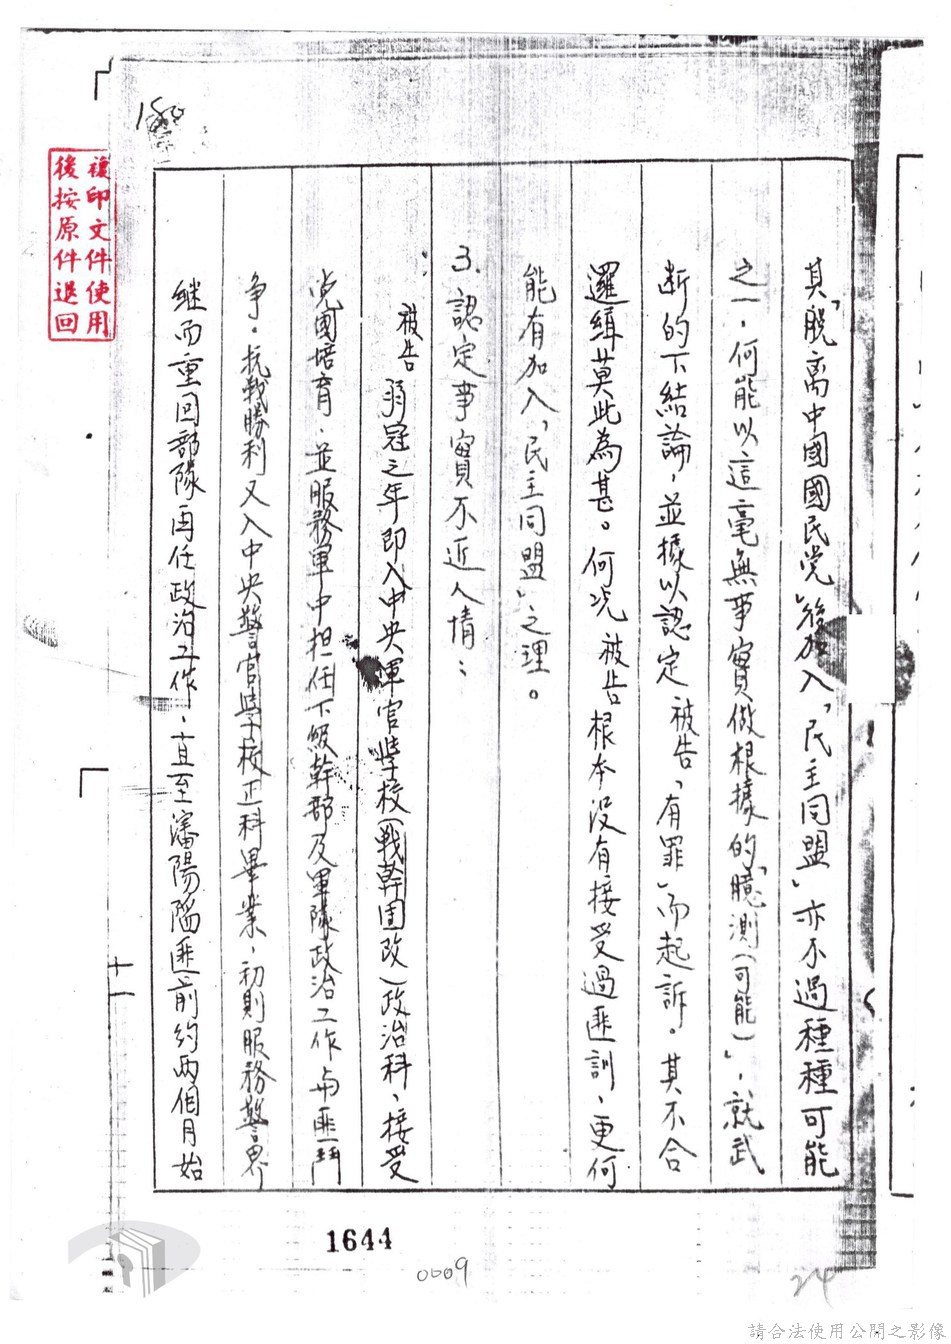 其「脫离中國國民党」後加入「民主同盟」亦不過種種可能
之一，何能以這毫無事實做根據的「臆測（可能）」，就武
断的下結論，並據以認定被告「有罪」而起訴。其不合
邏緝莫此為甚。何況被告根本没有接受過匪訓、更何
能有加入「民主同盟」之理。
3.認定事實不近人情：
被告弱冠之年即入中央軍官學校（戰幹團改）政治科、接受
党國培育，並服務軍中担任下級幹部及軍隊政治工作与匪鬥
争。抗戰勝利又入中央警官學校正科畢業，初則服務警界
继而重回部隊再任政治工作、直至瀋陽陷匪前約两個月始
十一
複印文件使用
後按原件退回
1644
0009
24
請合法使用公開之影像